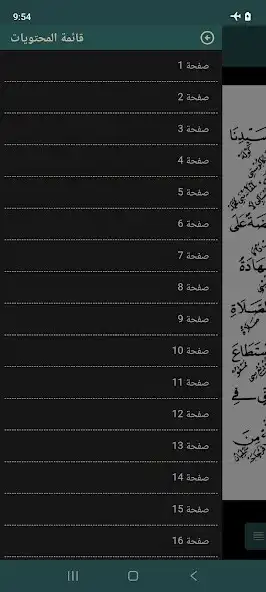 9:54
قائمة المحتويات
صفحة 1
صفحة 2
صفحة 3
صفحة 4
صفحة 5
صفحة 6
صفحة 7
صفحة 8
صفحة 9
صفحة 10
صفحة 11
صفحة 12
صفحة 13
صفحة 14
صفحة 15
صفحة 16
سَيِّدِنَا
عَلَى
الصَّلَاةِ
فِي
مِنَ